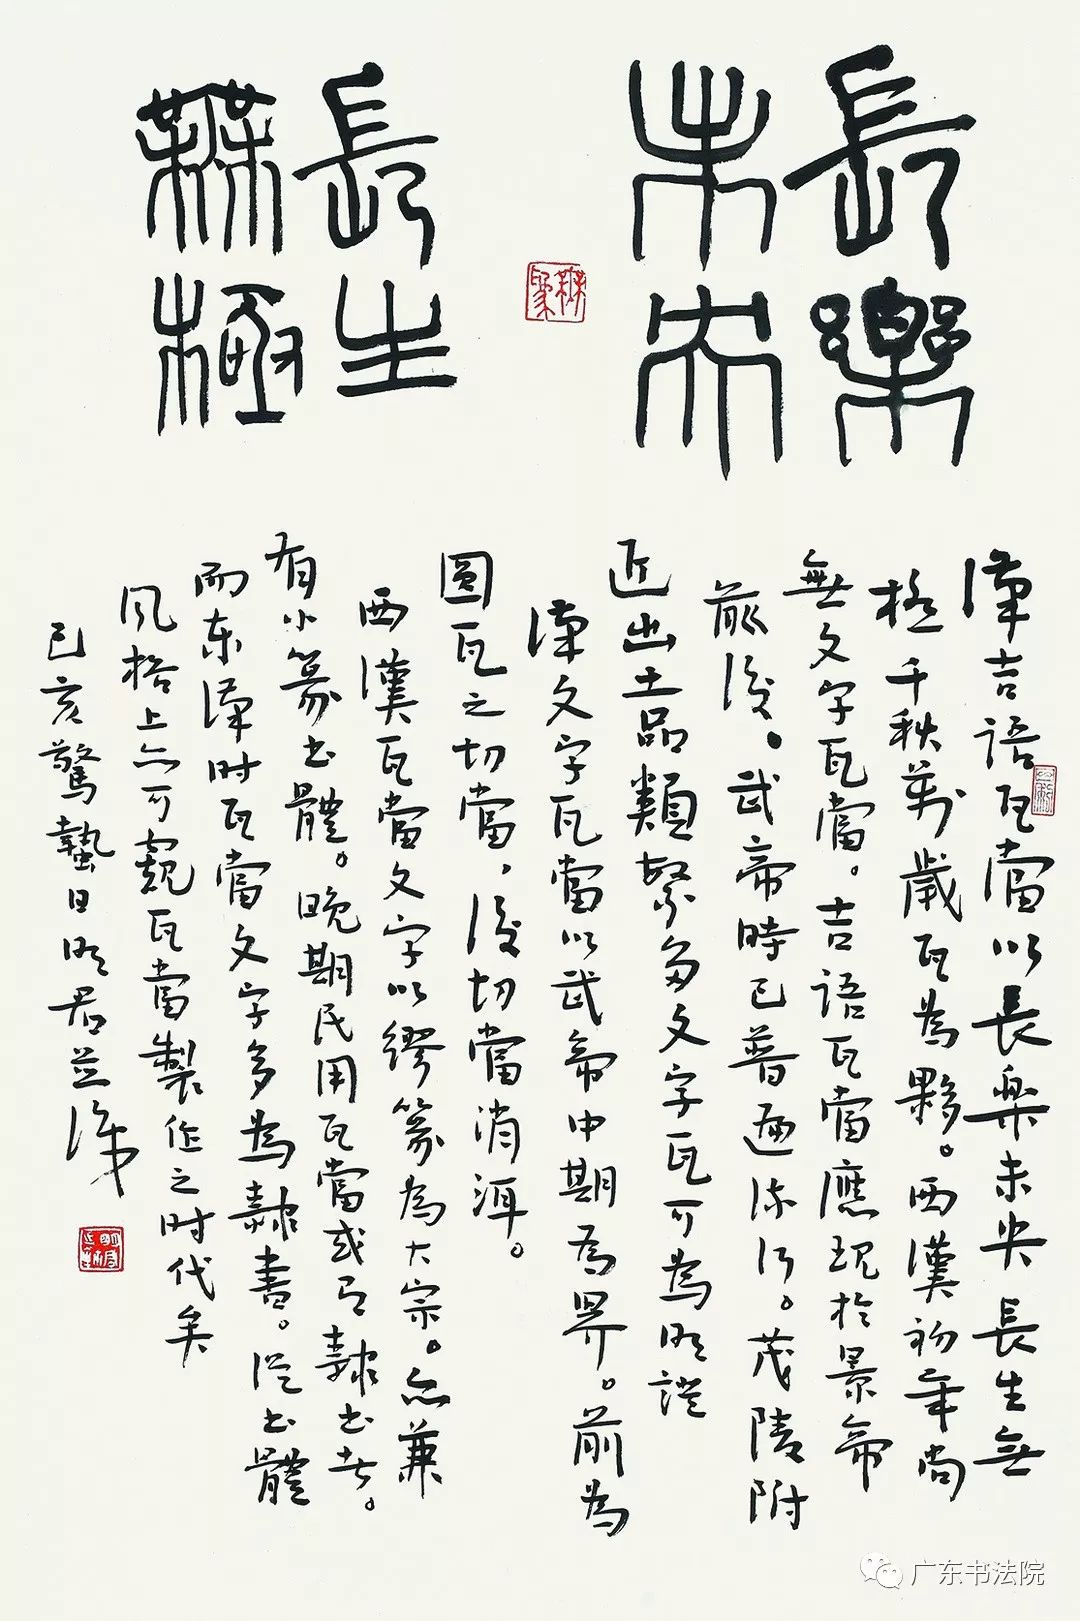 長樂
未央
長生
無極
漢吉語瓦當以長樂未央長生無
極千秋萬歲瓦為夥。西漢初年尚
無文字瓦當。吉語瓦當應現於景帝
前後。武帝時已普遍流行。茂陵附
近出土品類繁多文字瓦可為明證
漢文字瓦當以武帝中期為界。前為
圓瓦之切當，後切當消洱。
西漢瓦當文字以繆篆為大宗。亦兼
有小篆書體。晚期民用瓦當或有隸書者。
而东漢时瓦當文字多為隸書。從書體
風格上亦可窺瓦當製作之时代矣
己亥驚蟄日明君並識
广东书法院